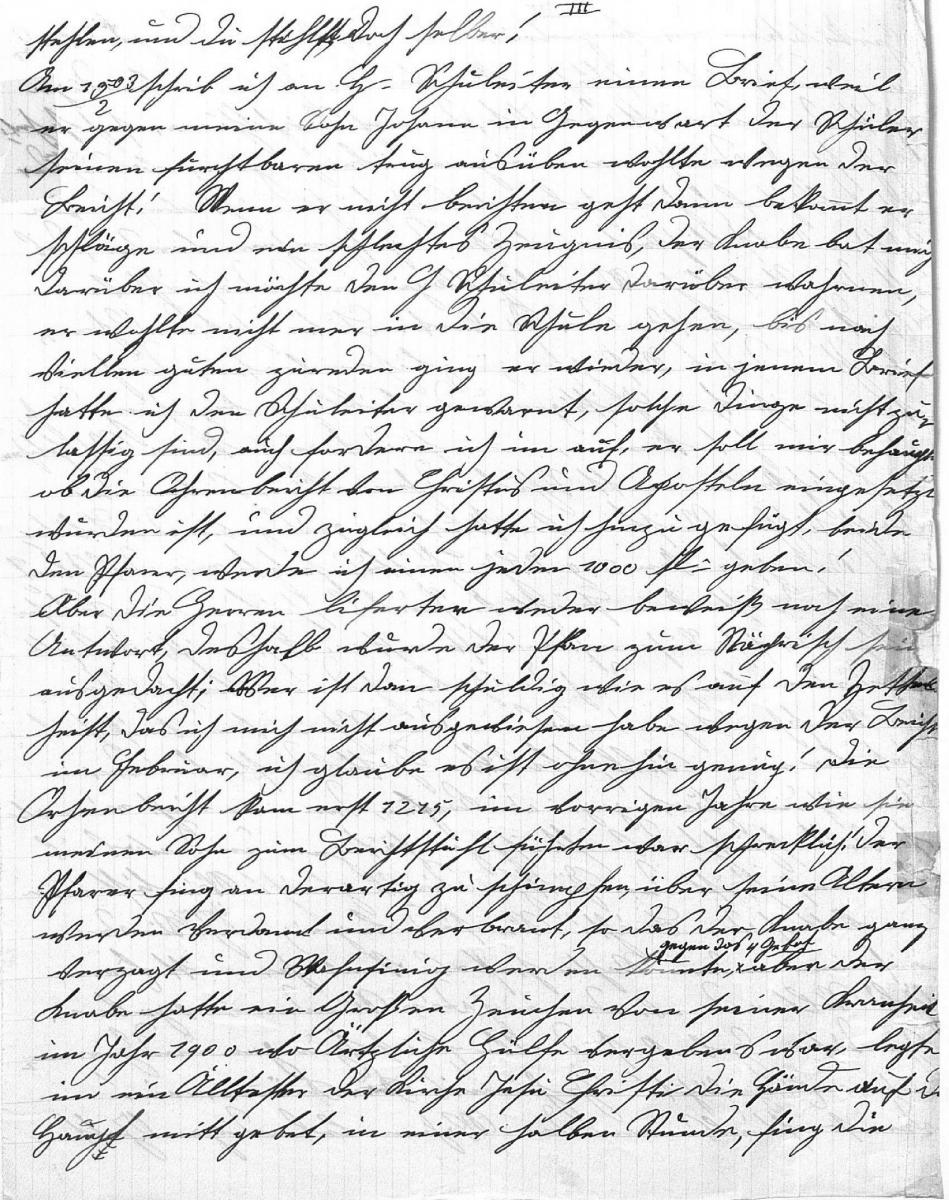 III
stehlen, und du stihlst doch selber!
Am 19 2 03 schrib ich an H. Schuleiter einen Brief, weil
er gegen meine Sohn Johann in Gegenwart der Schüler
seinen furchtbaren ausüben wohlte wegen der
Beicht! Wenn er nicht beichten geht dann bekomt er
schläge und ein schlechtes Zeugnis, der Knabe bat mich
darüber ich möchte den H Schuleiter darüber wahrnen,
er wohlte nicht mer in die Schule gehen, bis nach
viellen guten zureden ging er wieder, in jenem Brief
hatte ich den Schuleiter gewarnt, solche dinge nicht zu
lassig sind, auch fordere ich im auf, er soll mir
ob die Ohrenbeicht von Christus und Aposteln eingesetzt
wurden ist, und zugleich hatte ich hinzu gefügt, beide
den Pfarer, werde ich einen jeden 1000 geben!
Aber die Herren liferten weder beweiß noch eine
Antwort, deshalb wurde der Plan zum sein
ausgedacht; Wer ist dan schuldig wie es auf den
heist, das ich mich nicht ausgewiesen habe wegen der Beicht
im Februar, ich glaube es ist ohnehin genug! Die
Orhenbeicht kam erst 1215, im vorrigen Jahre wie sie
meinen Sohn zum Beichtstuhl führten war schrecklich! der
Pfarer fing an derartig zu schimpfen, über seine Altern
werden verdamt und verbrant, so das der Knabe ganz
gegen das 4 Gebot
verzagt und Wahnsinig werden konnte, x aber der
Knabe hatte ein Großen Zeichen von seiner Krankheit
im Jahr 1900 wo Ärtzliche Hülfe vergebens war, legte
im ein Älltester der Kirche Jesu Christi die Hände auf
Haupt mitt gebet, in einer halben Stunde, fing die